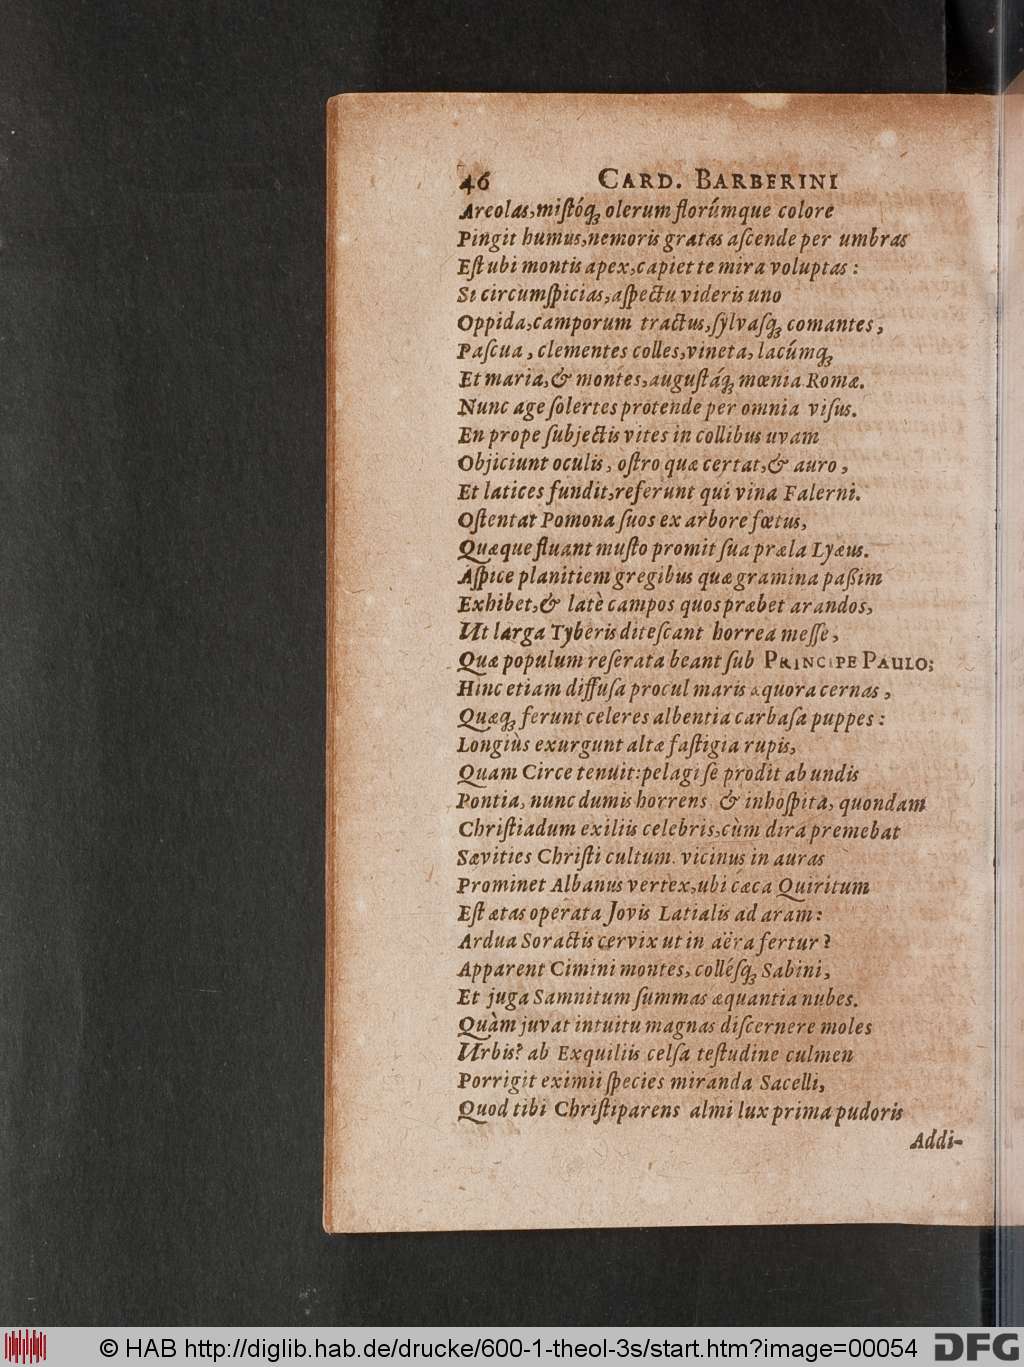 46 CARD. BARBERINI
Areolas, miſtóq́; olerum florúmque colore
Pingit humus, nemoris gratas aſcende per umbras
Eſt ubi montis apex, capiet te mira voluptas:
Si circumſpicias, aſpectu videris uno
Oppida, camporum tractus, ſylvaſq́; comantes,
Paſcua, clementes colles, vineta, lacúmq́;
Et maria, & montes, auguſtáq́; mœnia Romæ.
Nunc age ſolertes protende per omnia viſus.
En prope ſubjectis vites in collibus uvam
Objiciunt oculis, oſtro quæ certat, & auro,
Et latices fundit, referunt qui vina Falerni.
Oſtentat Pomona ſuos ex arbore fœtus,
Quæque fluant muſto promit ſua præla Lyæus.
Aſpice planitiem gregibus quæ gramina paßim
Exhibet, & latè campos quos præbet arandos,
Ut larga Tyberis diteſcant horrea meſſe,
Quæ populum reſerata beant ſub PRINCIPE PAULO;
Hinc etiam diffuſa procul maris æquora cernas,
Quæq́; ferunt celeres albentia carbaſa puppes:
Longiùs exurgunt altæ faſtigia rupis,
Quam Circe tenuit: pelagi ſe prodit ab undis
Pontia, nunc dumis horrens & inhoſpita, quondam
Chriſtiadum exiliis celebris, cùm dira premebat
Sævities Chriſti cultum. vicinus in auras
Prominet Albanus vertex, ubi cæca Quiritum
Eſt ætas operata Jovis Latialis ad aram:
Ardua Soractis cervix ut in aëra fertur?
Apparent Cimini montes, colléſq́; Sabini,
Et juga Samnitum ſummas æquantia nubes.
Quàm juvat intuitu magnas diſcernere moles
Urbis? ab Exquiliis celſa teſtudine culmen
Porrigit eximii ſpecies miranda Sacelli,
Quod tibi Chriſtiparens almi lux prima pudoris
Addi-
© HAB http://diglib.hab.de/drucke/600-1-theol-3s/start.htm?image=00054 DFG